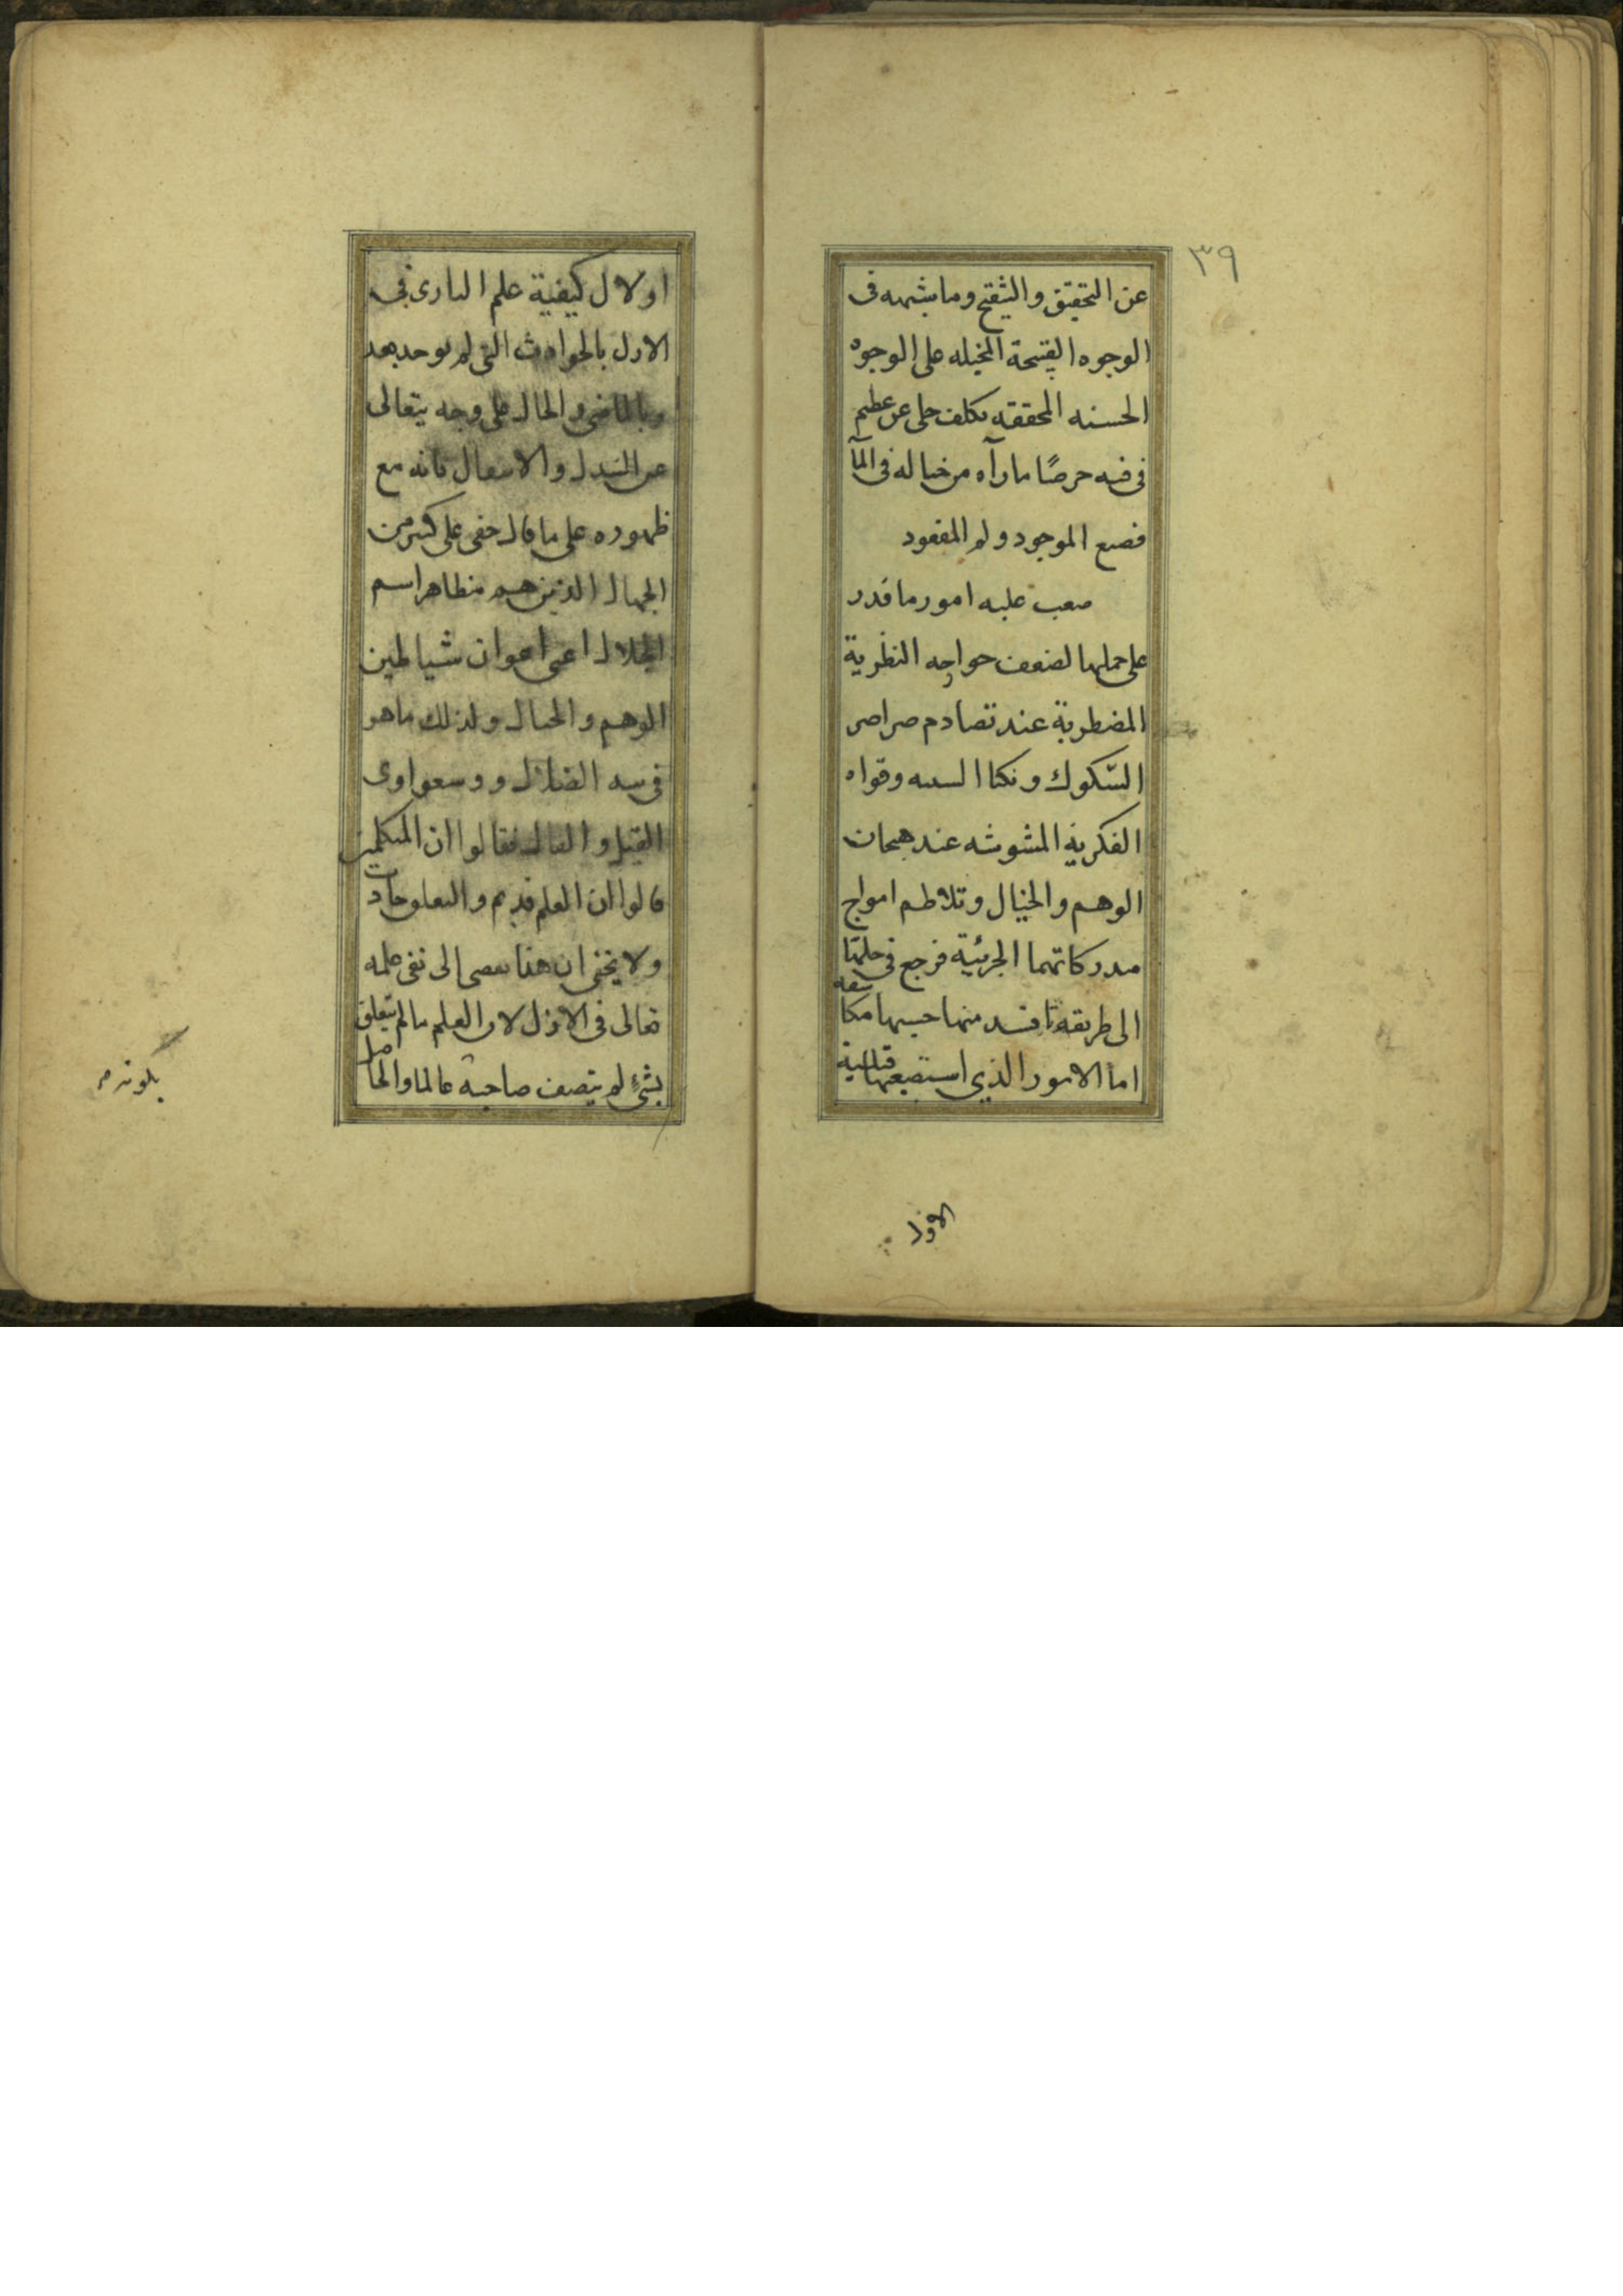 ٣٩
عن التحقيق والتنقيح وما يشبهه فى
الوجوه القبيحة المخيله على الوجوه
الحسنه المحققه عظيم
فى فيه حرصًا ما رآه من خياله فى المآ
فضيع الموجود ولم المفقود
صعب عليه امور ما قدر
على حملها لضعف النظرية
المضطربة عند تصادم صراصر
الشكوك و وقواه
الفكرية المشوشه عند هيجان
الوهم والخيال وتلاطم امواج
مدركاتهما الجزئية فرجع فى حلها
الى طريقة منها حسبها
اما الامور الذي استصعبها
الاول
اولا ل كيفية علم البارى فى
الازل بالحوادث التى لم توجد بعد
وبالماضى والحال على وجه يتعالى
عن التبدل والانتقال فانه مع
ظهوره على ما قال خفى على كثير من
الجهال الذين هم مظاهر اسم
الجلال اعنى اعوان شياطين
الوهم والخيال ولذلك
فى الضلال و
القيل والقال فقالوا ان المتكلمين
قالوا ان العلم قديم والتعلق حادث
ولا يخفى ان هذا يفضى الى نفى علمه
تعالى فى الازل لان العلم ما لم يتعلق
بشئ لم يتصف صاحبه عالما والحاصل